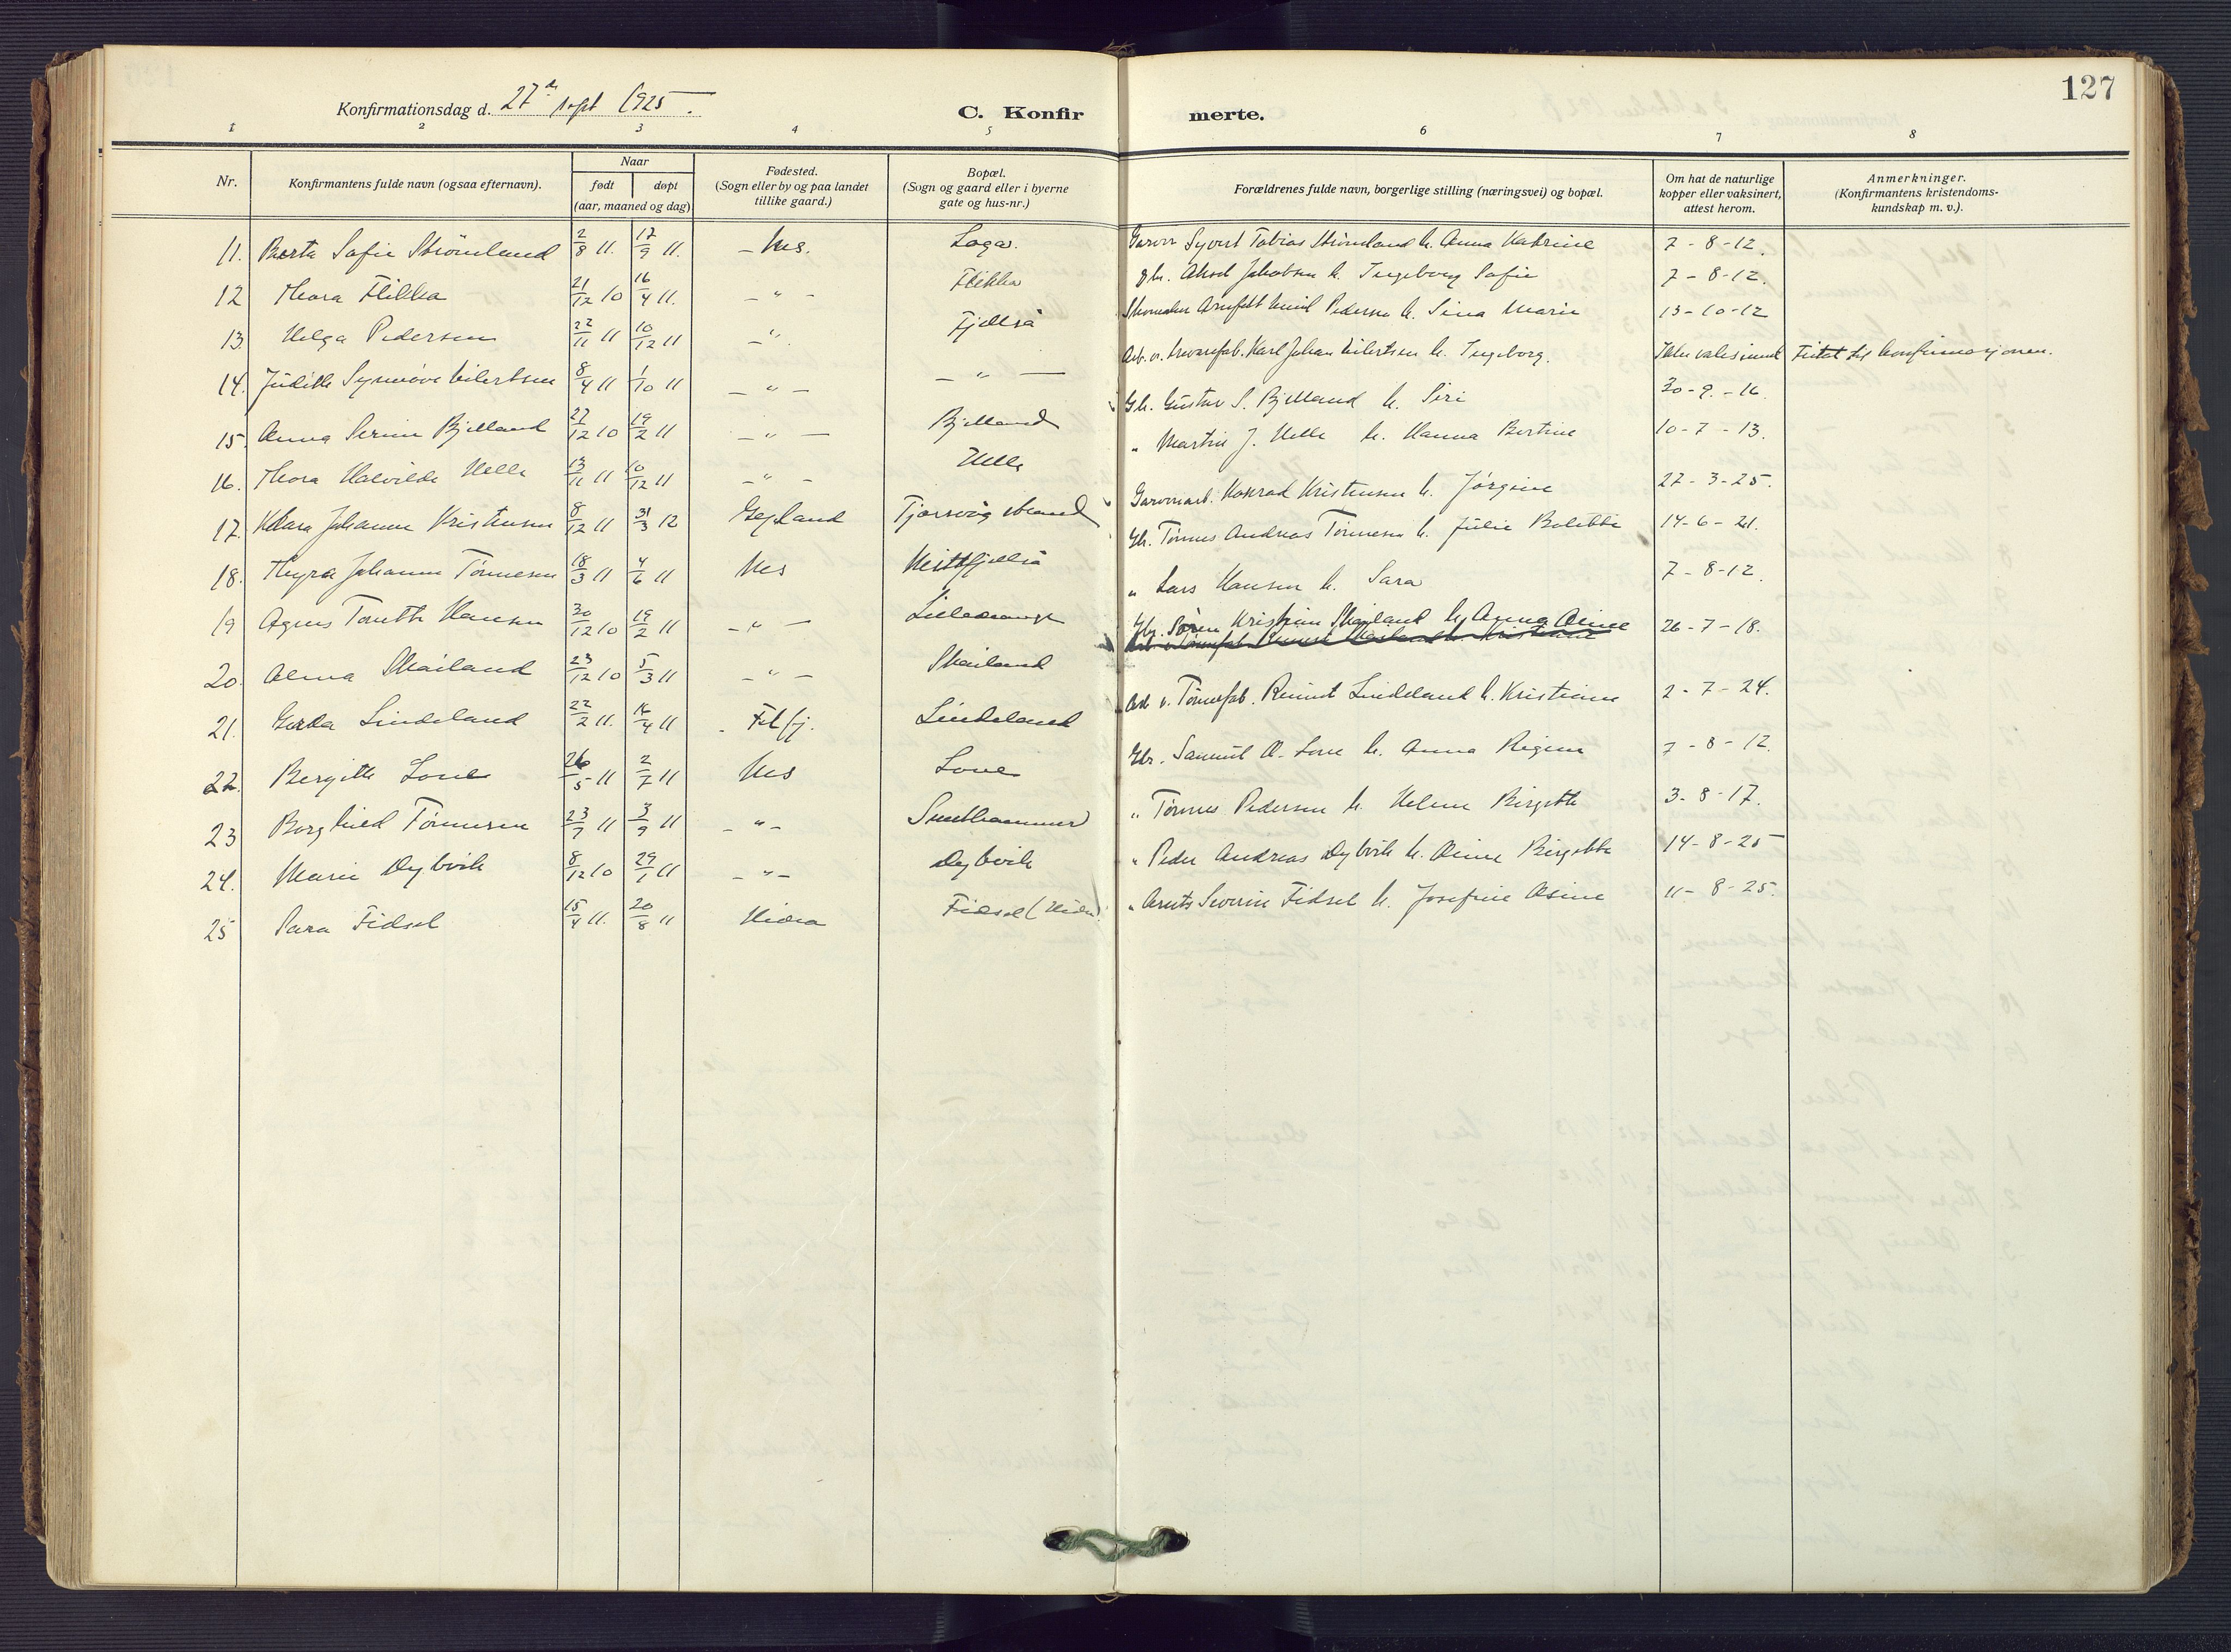 127
Konfirmationsdag d. 27de sept 1925.
C. Konfirmerte.
1 2 3 4 5 6 7 8
Nr. Konfirmantens fulde navn (ogsaa efternavn). Naar født døpt (aar, maaned og dag) Fødested. (Sogn eller by og paa landet tillike gaard.) Bopæl. (Sogn og gaard eller i byerne gate og hus-nr.) Forældrenes fulde navn, borgerlige stilling (næringsvei) og bopæl. Om hat de naturlige kopper eller vaksinert, attest herom. Anmerkninger. (Konfirmantens kristendomskundskap m. v.).
11. Berta Sofie Strömland 2/8 11. 17/9 11. Nes. Loga. Garver Syvert Tobias Strömland h. Anna Katrine 7-8-12.
12 Thora Flikka 21/12 10 16/4 11. " Flikka Gbr. Aksel Jakobsen h. Ingeborg Sofie 7-8-12.
13. Helga Pedersen 22/11 11 10/12 11 " Fjellså Skomaker Arnfelt Emil Pedersen h. Sina Marie 13-10-12
14. Judith Synnöve Eilertsen 8/4 11 1/10 11 " " Arb. v. Karl Johan Eilertsen h. Ingeborg. Ikke vaksinert
15 Anna Serine Bjelland 27/12 10 19/2 11 " Bjelland Gbr. Gustav S. Bjelland h. Siri 30-9-16.
16. Thora Halvilde Helle 13/11 11 10/12 11 " Helle " Martin J. Helle h. Hanna Bertine 10-7-13.
17. Klara Johanne Kristensen 8/12 11 31/3 12 Gyland Tjorsvåg strand Garveriarb. Konrad Kristensen h. Jørgine 22-3-25.
18. Thyra Johanne Tönnesen 18/3 11 4/6 11 Nes Gbr. Tönnes Andreas Tönnesen h. Julie Bolette 14-6-21.
19 Agnes Tonette Hansen 30/12 10 19/2 11 " " Lars Hansen h. Sara 7-8-12.
20. Alma Skailand 23/12 10 5/3 11 " Skailand Gbr. Sören Kristian Skailand h. Anna Oline 26-7-18.
21. Gerda Lindeland 22/2 11. 16/4 11 Fel fj. Lindeland Arb v. Tönnefab. Reinert Lindeland h. Kristiane 2-7-24.
22. Bergitte Lone 26/5 11 2/7 11 Nes Lone Gbr. Samuel A. Lone h. Anna Regine 7-8-12.
23 Borghild Tönnesen 23/7 11 3/9 11 " Sundhammer " Tönnes Pedersen h. Helene Birgitte 3-8-17.
24. Marie Dybvik 8/12 10 29/1 11 " Dybvik " Peder Andreas Dybvik h. Oline Birgitte 14-8-25
25 Sara Fidsel 15/4 11. 20/8 11 Hidra Fidsel (Hidra) " Arnts Severin Fidsel h. Josefine Asine 11-8-25.